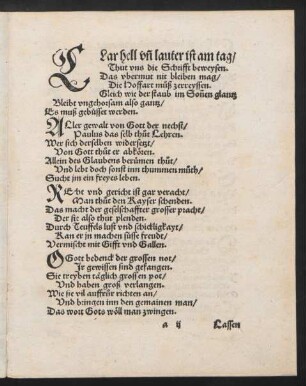 CLar hell vñ lauter ist am tag/
Thut vns die Schrifft beweysen.
Das vbermut nit bleiben mag/
Die Hoffart müß zerreyssen.
Gleich wie der staub im Soñen glantz
Bleibt vngehorsam also gantz/
Es muß gebüsset werden.
ALler gewalt von Gott der nechst/
Paulus das selb thüt Lehren.
Wer sich derselben widersetzt/
Von Gott thüt er abkören.
Allein des Glaubens berümen thüt/
Vnd lebt doch sonst inn thummen müth/
Sucht jm ein freyes leben.
REcht vnd gericht ist gar veracht/
Man thüt den Kayser schenden.
Das macht der geselschaffter grosser pracht/
Der sie also thut plenden.
Durch Teuffels lust vnd schickligkayt/
Kan er jn machen süsse freude/
Vermischt mit Gifft vnd Gallen.
O Gott bedenck der grossen not/
Jr gewissen sind gefangen.
Sie treyben täglich grossen pot/
Vnd haben groß verlangen.
Wie sie vil auffrür richten an/
Vnd bringen inn den gemainen man/
Das wort Gots wöll man zwingen.
a ij Lassen